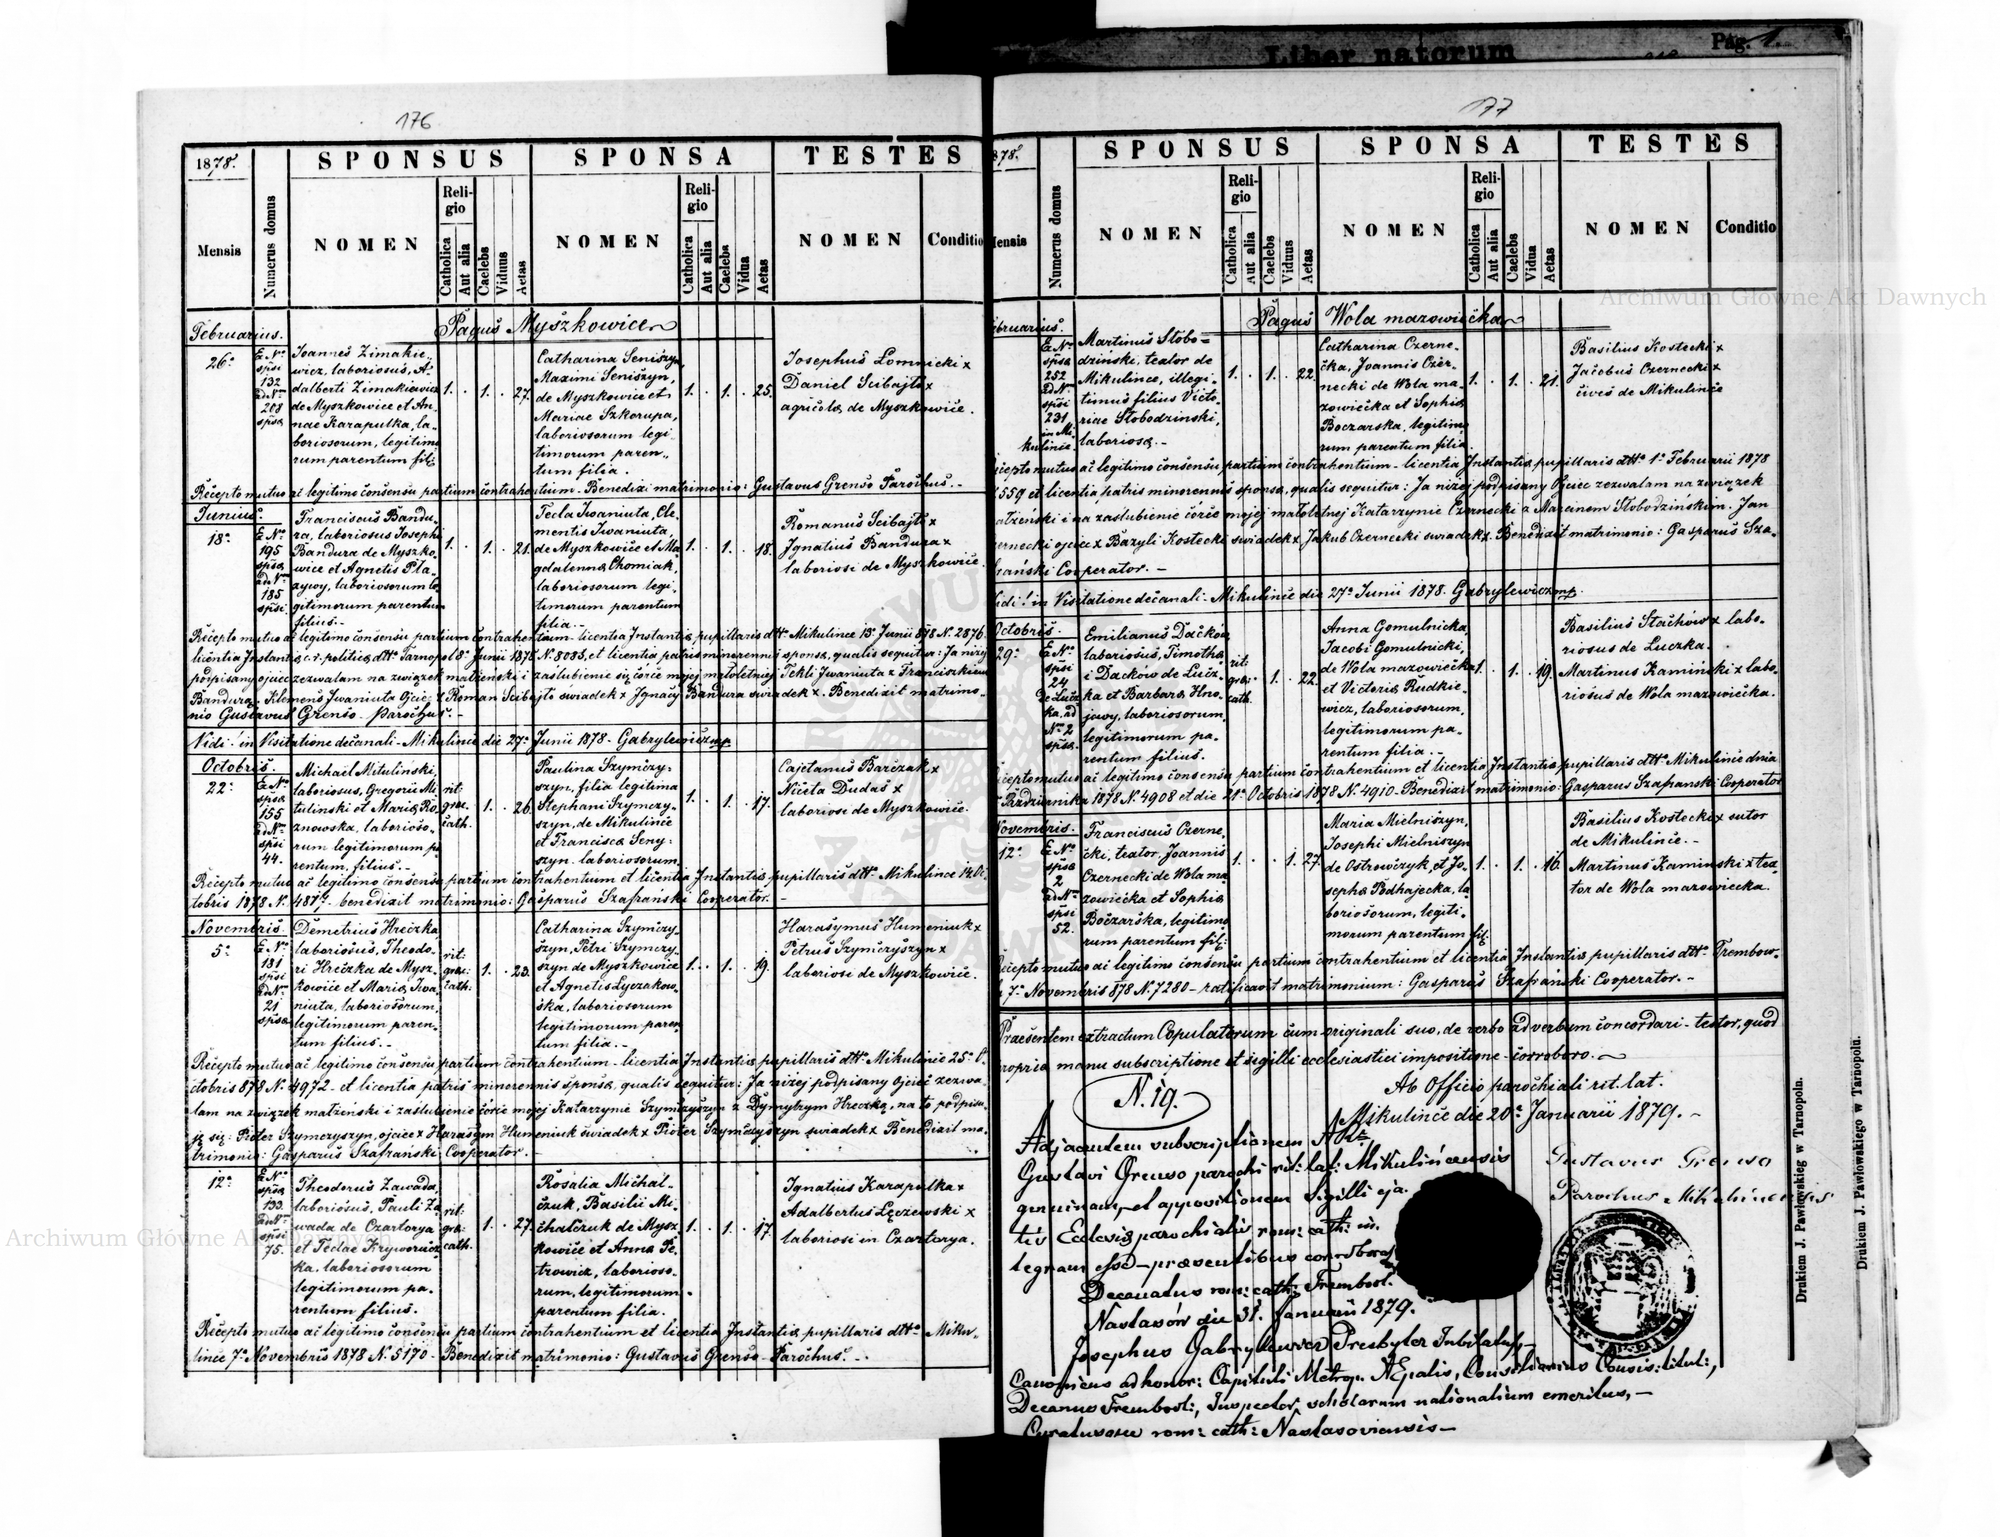 Liber natorum
Pag. 1.
176
1878.
SPONSUS
SPONSA
TESTES
Mensis
Numerus domus
NOMEN
Religio
Catholica
Aut alia
Caelebs
Viduus
Aetas
NOMEN
Religio
Catholica
Aut alia
Caelebs
Vidua
Aetas
NOMEN
Conditio
Pagus Myszkowice
Februarius.
26a
E No
spsi
132
ad Nm
208
spsa
Joannes Zimakie-
wicz, laboriosus, A-
dalberti Zimakiewicz
de Myszkowice et An-
nae Karapulka, la-
boriosorum, legitimo
rum parentum fil:
1. . 1. . 27.
Catharina Seniszyn,
Maximi Seniszyn,
de Myszkowice et
Mariae Szkorupa,
laboriosorum legi-
timorum paren-
tum filia.
1. . 1. . 25.
Josephus Lomnicki x
Daniel Scibajlo x
agricola de Myszkowice.
Recepto mutuo ac legitimo consensu partium contrahentium - Benedixi matrimonio: Gustavus Grenso Parochus. -
Junius.
18a
E No
195
spsa
ad Nm
185
spsi
Franciscus Bandu-
ra, laboriosus Josephi
Bandura de Myszko-
wice et Agnetis Pla-
zywy, laboriosorum le
gitimorum parentum
filius. -
1. . 1. . 21.
Tecla Iwaniuta, Cle-
mentis Iwaniuta,
de Myszkowice et Ma-
gdalenna Chomiak,
laboriosorum legi-
timorum parentum
filia. -
1. . 1. . 18.
Romanus Scibajlo x
Ignatius Bandura x
laboriosi de Myszkowice.
Recepto mutuo ac legitimo consensu partium contrahentium - licentia Instantia pupillaris dtto Mikulince 13a Junii 878 N. 2876.
licentia Instantia c. r. politica dtto Tarnopol 8a Junii 1878 N. 8083, et licentia patris minorennis sponsa, qualis sequitur: Ja niżej
podpisany ojciec zezwalam na związek małżeński i zaslubienie się córce mojej małoletniej Tekli Iwaniuta z Franciszkiem
Bandura - Klemens Iwaniuta Ojciec x Roman Scibajlo swiadek x Ignacy Bandura swiadek x. Benedixit matrimo-
nio Gustavus Grenso - Parochus. -
Vidi! in Visitatione decanali - Mikulince die 27a Junii 1878 - Gabrylewicz mp.
Octobris.
22a
E No
spsa
155
ad Nm
spsi
44.
Michael Mitulinski,
laboriosus, Gregorii Mi
tulinski et Maria Ro-
znowska, laborioso-
rum legitimorum pa
rentum, filius. -
rit:
grae.
cath.
1. . 26.
Paulina Szymczy-
szyn, filia legitima
Stephani Szymczy-
szyn, de Mikulince
et Francisca Seny-
szyn. laboriosorum.
1. . 1. . 17.
Cajetanus Barczak x
Niceta Dudas x
laboriosi de Myszkowice.
Recepto mutuo ac legitimo consensu partium contrahentium et licentia Instantia pupillaris dtto Mikulince 14 Oc-
tobris 1878 N. 4817. benedixit matrimonio: Gasparus Szafrański Cooperator. -
Novembris.
5a
E No
181
spsi
ad Nm
21
spsa
Demetrius Hreczka
laboriosus, Theodo-
ri Hreczka de Mysz-
kowice et Maria Iwa-
niuta, laboriosorum,
legitimorum paren-
tum filius. -
rit:
grae:
cath:
1. . 23.
Catharina Szymczy-
szyn, Petri Szymczy-
szyn de Myszkowice
et Agnetis Lyczakow-
ska, laboriosorum
legitimorum paren
tum filia. -
1. . 1. . 19.
Harasymus Humeniuk x
Petrus Szymczyszyn x
laboriosi de Myszkowice.
Recepto mutuo ac legitimo consensu partium contrahentium - licentia Instantia pupillaris dtto Mikulince 25a O-
ctobris 878 N. 4972. et licentia patris minorennis sponsa, qualis sequitur: Ja niżej podpisany ojciec zezwa-
lam na związek małżeński i zaślubienie córce mojej Katarzynie Szymczyszyn z Dymytrym Hreczka, na to podpisu-
ję się: Pioter Szymczyszyn, ojciec x Harasym Humeniuk świadek x Pioter Szymczyszyn swiadek x Benedixit ma-
trimonio: Gasparus Szafrański Cooperator. -
12a
E No
spsa
133.
ad Nm
spsi
75.
Theodorus Zawada,
laboriosus, Pauli Za-
wada de Czartorya
et Teclae Kryworucz
ka, laboriosorum
legitimorum pa-
rentum filius.
rit:
grae:
cath.
1. . 27.
Rosalia Michal-
czuk, Basilii Mi-
chalczuk de Mysz-
kowice et Anna Pe-
trowicz, laborioso-
rum, legitimorum
parentum filia.
1. . 1. . 17.
Ignatius Karapulka x
Adalbertus Lęczewski x
laboriosi in Czartorya.
Recepto mutuo ac legitimo consensu partium contrahentium et licentia Instantia pupillaris dtto Miku-
lince 7a Novembris 1878 N. 5170 - Benedixit matrimonio: Gustavus Grenso - Parochus. -
177
878.
SPONSUS
SPONSA
TESTES
ensis
Numerus domus
NOMEN
Religio
Catholica
Aut alia
Caelebs
Viduus
Aetas
NOMEN
Religio
Catholica
Aut alia
Caelebs
Vidua
Aetas
NOMEN
Conditio
Pagus Wola mazowiecka
bruarius.
E No
spsa
252
ad Nm
spsi
231
in Mi-
kulince
Martinus Slobo-
dziński, textor de
Mikulince, illegi-
timus filius Victo-
riae Slobodzinski,
laboriosa. -
1. . 1. . 22.
Catharina Czerne-
cka, Joannis Czer-
necki de Wola ma-
zowiecka et Sophia
Boczarska, legitimo
rum parentum filia.
1. . 1. . 21.
Basilius Kostecki x
Jacobus Czernecki x
cives de Mikulince
cepto mutuo ac legitimo consensu partium contrahentium - licentia Instantia pupillaris dtto 1a Februarii 1878
559 et licentia patris minorennis sponsa, qualis sequitur: Ja niżej podpisany Ojciec zezwalam na związek
ałżeński i na zaslubienie córce mojej małoletnej Katarzynie Czernecki z Marcinem Słobodzińskim. Jan
ernecki ojciec x Bazyli Kostecki swiadek x Jakub Czernecki swiadek x. Benedixit matrimonio: Gasparus Sza-
frański Cooperator. -
idi! in Visitatione decanali - Mikulince die 27a Junii 1878. Gabrylewicz mp.
Octobris.
29a
E No
spsi
24
de Lucz-
ka, ad
Nm 2
spsa.
Emilianus Dackow
laboriosus, Timothe
i Dacków de Lucz-
ka et Barbara Hno-
jowy, laboriosorum,
legitimorum pa-
rentum filius.
rit:
grae:
cath.
1. . 22.
Anna Gomulnicka,
Jacobi Gomulnicki,
de Wola mazowiecka
et Victoria Rudkie-
wicz, laboriosorum,
legitimorum pa-
rentum filia. -
1. . 1. . 19.
Basilius Stachów x labo-
riosus de Luczka.
Martinus Kamiński x labo-
riosus de Wola mazowiecka.
cepto mutuo ac legitimo consensu partium contrahentium et licentia Instantia pupillaris dtto Mikulince dnia
Października 1878 N. 4908 et die 21a Octobris 1878 N. 4910 - Benedixit matrimonio: Gasparus Szafranski Cooperator
Novembris.
12a
E No
spsa
2
ad Nm
spsi
52.
Franciscus Czerne-
cki, textor, Joannis
Czernecki de Wola ma-
zowiecka et Sophia
Boczarska, legitimo
rum parentum fil:
1. . . 1. 27.
Maria Mielniszyn,
Josephi Mielniszyn
de Ostrowczyk et Jo-
sepha Podhajecka, la
boriosorum, legiti-
morum parentum fil:
1. . 1. . 16.
Basilius Kostecki x sutor
de Mikulince. -
Martinus Kaminski x tex-
tor de Wola mazowiecka.
ecepto mutuo ac legitimo consensu partium contrahentium et licentia Instantia pupillaris dtto Trembow-
la 7a Novembris 878 N. 7280 - ratificavit matrimonium: Gasparus Szafrański Cooperator. -
Praesentem extractum Copulatorum cum originali suo, de verbo ad verbum concordari - testor, quod
propria manu subscriptione et sigilli ecclesiastici impositione - corroboro. -
N. 19.
Ab Officio parochiali rit. lat.
Mikulince die 20a Januarii 1879. -
Gustavus Grenso
Parochus Mikulincensis
Adjacentem subscriptionem
Gustavi Grenso parochi rit: lat: Mikulincensis
genuinam, et appositionem Sigilli eja-
Ecclesia parochialis rom: cath: in-
tegram esse - praesentibus corroboro
Decanatus rom: cath: Trembovl.
Nastasów die 31. Januarii 1879.
Josephus Gabrylewicz Presbyter Jubilatus,
Canonicus ad honor: Capituli Metrop. Consiliarius Consis: titul:,
Decanus Trembovl:, Inspector scholarum nationalium emeritus, -
rom: cath: Nastasoviensis -
Drukiem J. Pawłowskieg w Tarnopoln.
Drukiem J. Pawłowskiego w Tarnopolu.
Archiwum Główne Akt Dawnych
Archiwum Główne Akt Dawnych